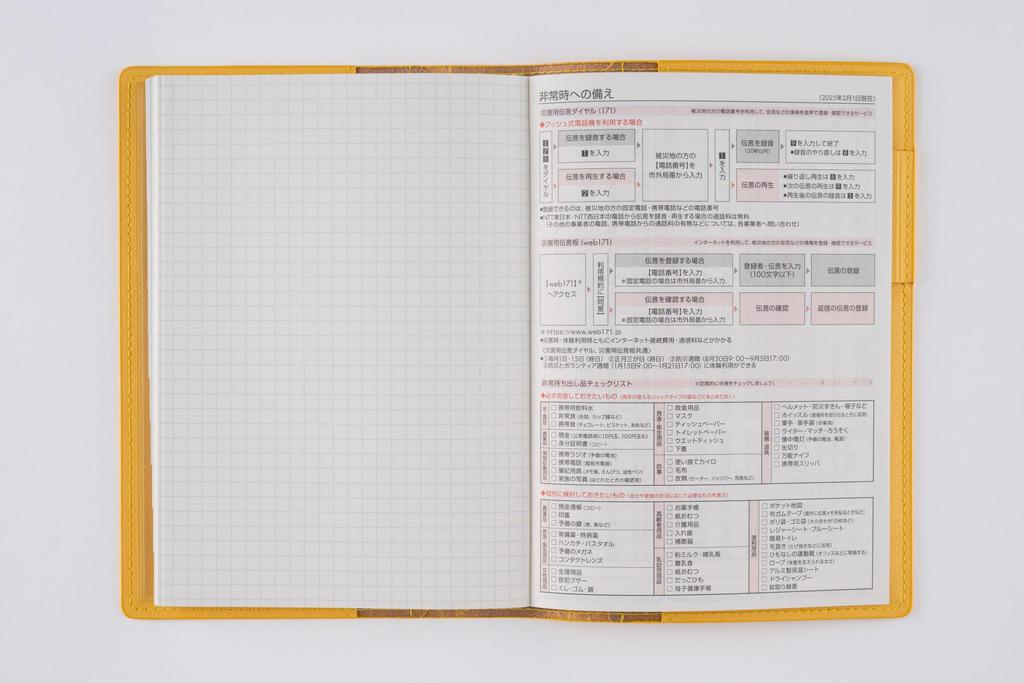 非常時への備え
(2025年2月1日現在)
災害用伝言ダイヤル(171)
被災地の方の電話番号を利用して、安否などの情報を音声で登録・確認できるサービス
◆プッシュ式電話機を利用する場合
171をダイヤル
伝言を録音する場合
1を入力
伝言を再生する場合
2を入力
被災地の方の
【電話番号】を
市外局番から入力
1を入力
伝言を録音
(30秒以内)
9を入力して終了
●録音のやり直しは8を入力
伝言の再生
●繰り返し再生は8を入力
●次の伝言の再生は9を入力
●再生後の伝言の録音は3を入力
●登録できるのは、被災地の方の固定電話・携帯電話などの電話番号
●NTT東日本・NTT西日本の電話から伝言を録音・再生する場合の通話料は無料
(その他の事業者の電話、携帯電話からの通話料の有無などについては、各事業者へ問い合わせ)
災害用伝言板(web171)
インターネットを利用して、被災地の方の安否などの情報を登録・確認できるサービス
【web171】※
へアクセス
利用規約に【同意】
伝言を登録する場合
【電話番号】を入力
＊固定電話の場合は市外局番から入力
登録者・伝言を入力
(100文字以下)
伝言の登録
伝言を確認する場合
【電話番号】を入力
＊固定電話の場合は市外局番から入力
伝言の確認
返信の伝言の登録
※ https://www.web171.jp
●災害時・体験利用時ともにインターネット接続費用・通信料などがかかる
〈災害用伝言ダイヤル、災害用伝言板共通〉
●①毎月1日・15日(終日) ②正月三が日(終日) ③防災週間(8月30日9:00〜9月5日17:00)
④防災とボランティア週間(1月15日9:00〜1月21日17:00)に体験利用ができる
非常持ち出し品チェックリスト
※定期的に中身をチェックしましょう( ・ ・ )( ・ ・ )
◆必ず用意しておきたいもの(両手が使えるリュックタイプの袋などにまとめておく)
水・食品
□携帯用飲料水
□非常食(缶詰、カップ麺など)
□携帯食(チョコレート、ビスケット、あめなど)
貴重品
□現金(公衆電話用に10円玉、100円玉も)
□身分証明書(コピー)
情報収集用品
□携帯ラジオ(予備の電池)
□携帯電話(簡易充電器)
□筆記用具(メモ帳、えんぴつ、油性ペン)
□家族の写真(はぐれたときの確認用)
救急・衛生用品
□救急用品
□マスク
□ティッシュペーパー
□トイレットペーパー
□ウエットティッシュ
□下着
防寒
□使い捨てカイロ
□毛布
□衣類(セーター、ジャンパー、雨具など)
装備・道具
□ヘルメット・防災ずきん・帽子など
□ホイッスル(居場所を知らせるときに活用)
□軍手・革手袋(作業用)
□ライター・マッチ・ろうそく
□懐中電灯(予備の電池、電源)
□缶切り
□万能ナイフ
□携帯用スリッパ
◆個別に検討しておきたいもの(自分や家族の状況に応じて必要なものを選ぶ)
貴重品
□預金通帳(コピー)
□印鑑
□予備の鍵(家、車など)
救急・衛生用品
□常備薬・持病薬
□ハンカチ・バスタオル
□予備のメガネ
□コンタクトレンズ
女性用品
□生理用品
□防犯ブザー
□くし・ゴム・鏡
高齢者用品
□お薬手帳
□紙おむつ
□介護用品
□入れ歯
□補聴器
乳幼児用品
□粉ミルク・哺乳瓶
□離乳食
□紙おむつ
□だっこひも
□母子健康手帳
便利用品
□ポケット地図
□布ガムテープ(屋外に伝言メモを貼るときなど)
□ポリ袋・ゴミ袋(大小合わせ10枚ほど)
□レジャーシート・ブルーシート
□簡易トイレ
□毛抜き(とげ抜きなどに活用)
□ひもなしの運動靴(オフィスなどに常備する)
□ロープ(体重を支えられる太さ)
□アルミ製保温シート
□ドライシャンプー
□蚊取り線香